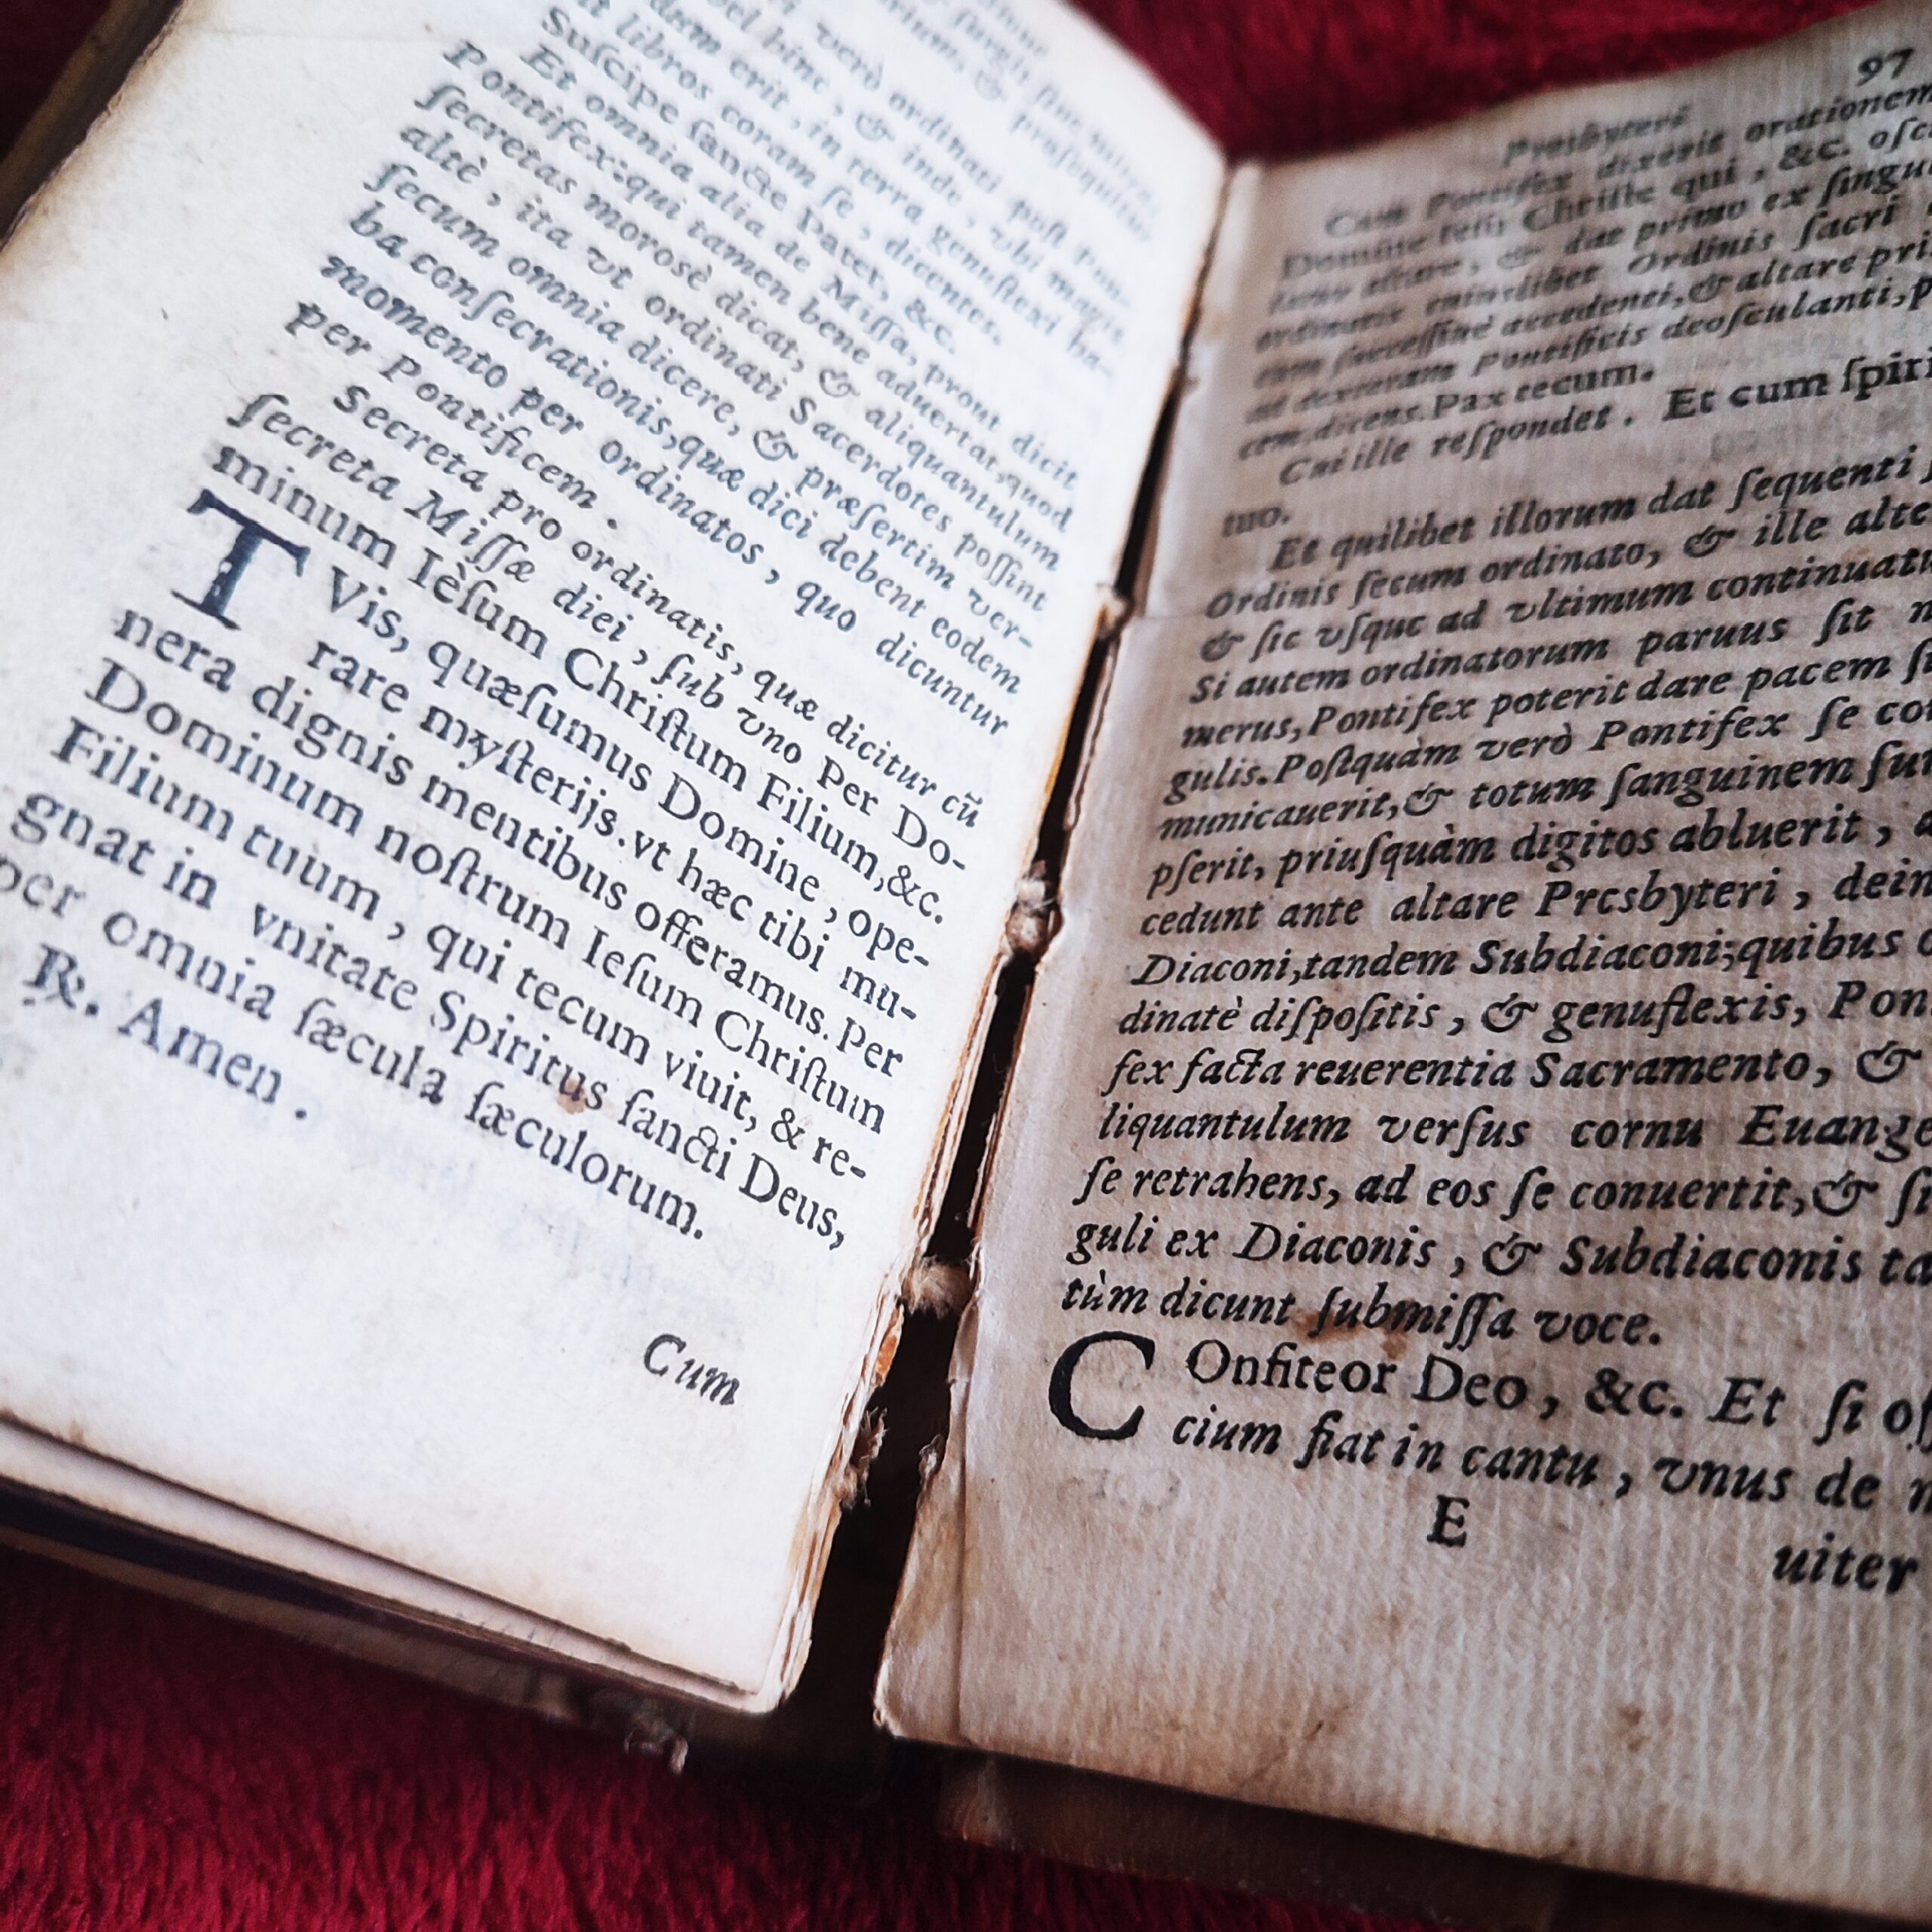 ſurgit ſine mitra,
& proſequitur
verò ordinati poſt Pon-
vel hinc, & inde, vbi magis
dum erit, in terra genuflexi ha-
libros coram ſe, dicentes.
Suſcipe ſancte Pater, &c.
Et omnia alia de Miſſa, prout dicit
Pontifex: qui tamen bene aduertat, quod
ſecretas moroſè dicat, & aliquantulum
altè, ita vt ordinati Sacerdotes poſſint
ſecum omnia dicere, & præſertim ver-
ba conſecrationis, quæ dici debent eodem
momento per ordinatos, quo dicuntur
per Pontificem.
Secreta pro ordinatis, quæ dicitur cũ
ſecreta Miſſæ diei, ſub vno Per Do-
minum Ièſum Chriſtum Filium, &c.
TVis, quæſumus Domine, ope-
rare myſterijs. vt hæc tibi mu-
nera dignis mentibus offeramus. Per
Dominum noſtrum Ieſum Chriſtum
Filium tuum, qui tecum viuit, & re-
gnat in vnitate Spiritus ſancti Deus,
per omnia ſæcula ſæculorum.
℟. Amen.
Cum
97
Presbyteri
Cum Pontifex dixerit orationem
Domine Ieſu Chriſte qui, &c. oſc
altare, & dat primo ex ſingu
ordinatis cuiuslibet Ordinis ſacri
cum ſucceſſiuè accedenti, & altare pri
ad dexteram Pontificis deoſculanti, p
cem, dicens. Pax tecum.
Cui ille reſpondet. Et cum ſpiri
tuo.
Et quilibet illorum dat ſequenti
Ordinis ſecum ordinato, & ille alte
& ſic vſque ad vltimum continuat
Si autem ordinatorum paruus ſit n
merus, Pontifex poterit dare pacem ſi
gulis. Poſtquàm verò Pontifex ſe co
municauerit, & totum ſanguinem ſu
pſerit, priuſquàm digitos abluerit,
cedunt ante altare Presbyteri, dein
Diaconi, tandem Subdiaconi; quibus
dinatè diſpoſitis, & genuflexis, Pon
fex facta reuerentia Sacramento, &
liquantulum verſus cornu Euange
ſe retrahens, ad eos ſe conuertit, & ſi
guli ex Diaconis, & Subdiaconis ta
tùm dicunt ſubmiſſa voce.
COnfiteor Deo, &c. Et ſi of
cium fiat in cantu, vnus de n
E
uiter